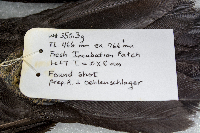 wt 550.3g
TL 466 mm ex 766 mm
Fresh Incubation Patch
Left T = 5 x 5 mm
Found Shot
prep. R. Oehlenschlager